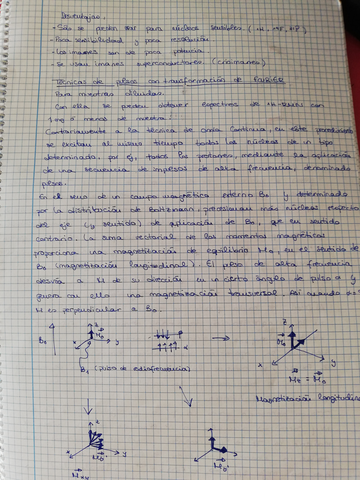 Desventajas:
- Solo se pueden usar para núcleos sensibles. (¹H, ¹⁹F, ³¹P)
- Poca sensibilidad y poca resolución
- Los imanes son de poca potencia.
- Se usan imanes superconductores. (crioimanes)
Técnicas de pulsos con transformación de Fourier
Para muestras diluidas.
Con ella se pueden obtener espectros de ¹H-RMN con
1 mg ó menos de muestra.
Contrariamente a la técnica de onda Continua, en este procedimiento
se excitan al mismo tiempo todos los núcleos de un tipo
determinado, por ej, todos los protones, mediante la aplicación
de una secuencia de impulsos de alta frecuencia, denominado
pulsos.
En el seno de un campo magnético externo B₀ y determinado
por la distribución de Boltzmann, precesionan más núcleos alrededor
del eje (y sentido) de aplicación de B₀, que en sentido
contrario. La suma vectorial de los momentos magnéticos
proporciona una magnetización de equilibrio M₀, en el sentido de
B₀ (magnetización longitudinal). El pulso de alta frecuencia
desvía a M de su dirección en un cierto ángulo de pulso α y
genera con ello una magnetización transversal. Así cuando
M es perpendicular a B₀.
B₀ z M₀ x y
B₁ (pulso de radiofrecuencia)
z M₀ x y
M = M₀
Magnetización longitudinal
z x y
Mxy M₀